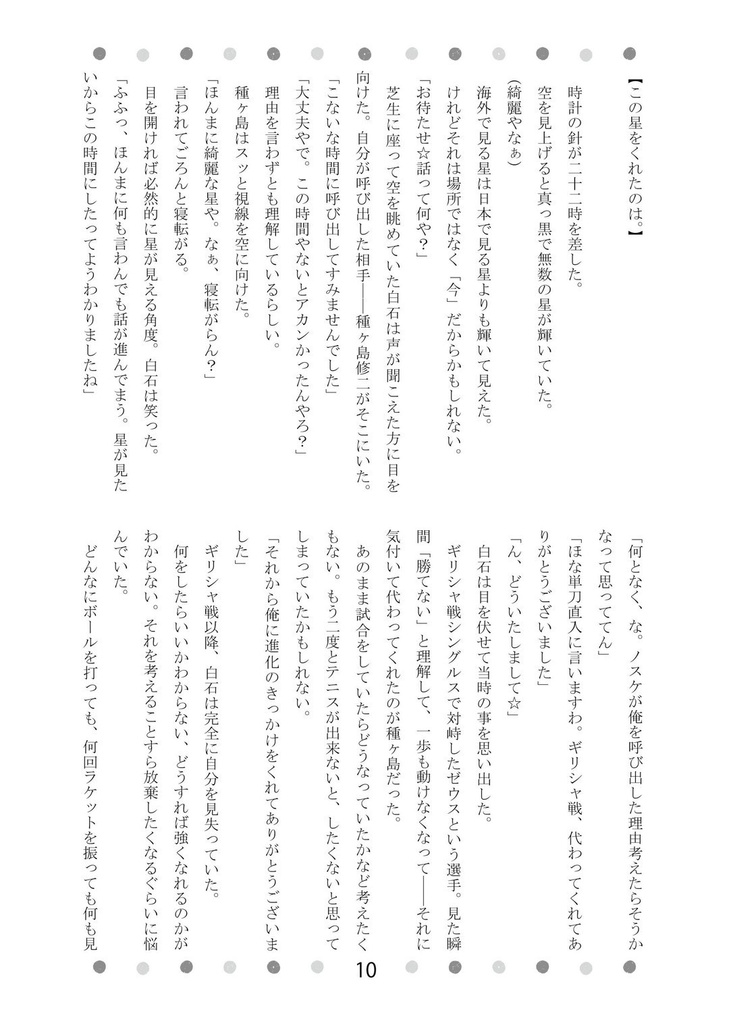 【この星をくれたのは。】
時計の針が二十二時を差した。
空を見上げると真っ黒で無数の星が輝いていた。
(綺麗やなぁ)
海外で見る星は日本で見る星よりも輝いて見えた。
けれどそれは場所ではなく「今」だからかもしれない。
「お待たせ☆話って何や？」
芝生に座って空を眺めていた白石は声が聞こえた方に目を
向けた。自分が呼び出した相手――種ヶ島修二がそこにいた。
「こないな時間に呼び出してすみませんでした」
「大丈夫やで。この時間やないとアカンかったんやろ？」
理由を言わずとも理解しているらしい。
種ヶ島はスッと視線を空に向けた。
「ほんまに綺麗な星や。なぁ、寝転がらん？」
言われてごろんと寝転がる。
目を開ければ必然的に星が見える角度。白石は笑った。
「ふふっ、ほんまに何も言わんでも話が進んでまう。星が見た
いからこの時間にしたってようわかりましたね」
「何となく、な。ノスケが俺を呼び出した理由考えたらそうか
なって思っててん」
「ほな単刀直入に言いますわ。ギリシャ戦、代わってくれてあ
りがとうございました」
「ん、どういたしまして☆」
白石は目を伏せて当時の事を思い出した。
ギリシャ戦シングルスで対峙したゼウスという選手。見た瞬
間「勝てない」と理解して、一歩も動けなくなって――それに
気付いて代わってくれたのが種ヶ島だった。
あのまま試合をしていたらどうなっていたかなど考えたく
もない。もう二度とテニスが出来ないと、したくないと思って
しまっていたかもしれない。
「それから俺に進化のきっかけをくれてありがとうございま
した」
ギリシャ戦以降、白石は完全に自分を見失っていた。
何をしたらいいかわからない、どうすれば強くなれるのかが
わからない。それを考えることすら放棄したくなるぐらいに悩
んでいた。
どんなにボールを打っても、何回ラケットを振っても何も見
10